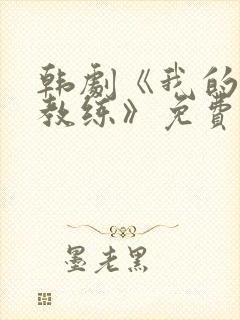 韩劇《我的
教练》免費
墨老黑